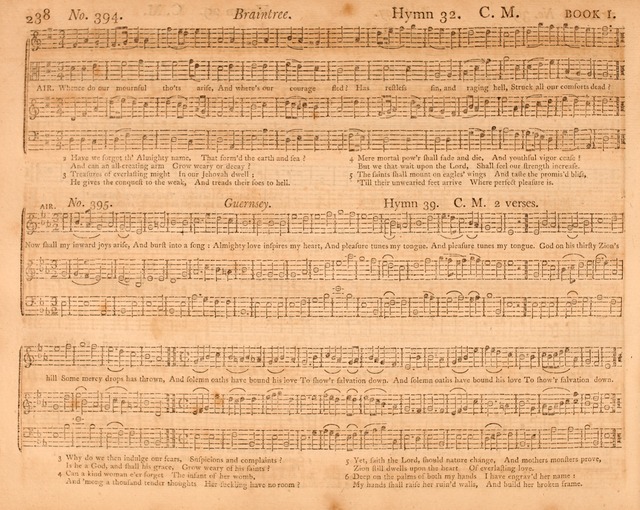 238 No. 394. Braintree. Hymn 32. C. M. BOOK I.
AIR. Whence do our mournful tho'ts arise, And where's our courage fled? Has restless sin, and raging hell, Struck all our comforts dead?
2 Have we forgot th' Almighty name, That form'd the earth and sea?
And can an all-creating arm Grow weary or decay?
3 Treasures of everlasting might In our Jehovah dwell;
He gives the conquest to the weak, And treads their foes to hell.
4 Mere mortal pow'r shall fade and die, And youthful vigor cease!
But we that wait upon the Lord, Shall feel our strength increase.
5 The saints shall mount on eagles' wings And taste the promis'd bliss,
'Till their unwearied feet arrive Where perfect pleasure is.
AIR. No. 395. Guernsey. Hymn 39. C. M. 2 verses.
Now shall my inward joys arise, And burst into a song: Almighty love inspires my heart, And pleasure tunes my tongue. And pleasure tunes my tongue. God on his thirsty Zion's
hill Some mercy drops has thrown, And solemn oaths have bound his love To show'r salvation down. And solemn oaths have bound his love To show'r salvation down.
3 Why do we then indulge our fears, Suspicions and complaints?
Is he a God, and shall his grace, Grow weary of his saints?
4 Can a kind woman e'er forget The infant of her womb,
And 'mong a thousand tender thoughts Her suckling have no room?
5 Yet, saith the Lord, should nature change, And mothers monsters prove,
Zion still dwells upon the heart Of everlasting love.
6 Deep on the palms of both my hands I have engrav'd her name:
My hands shall raise her ruin'd walls, And build her broken frame.